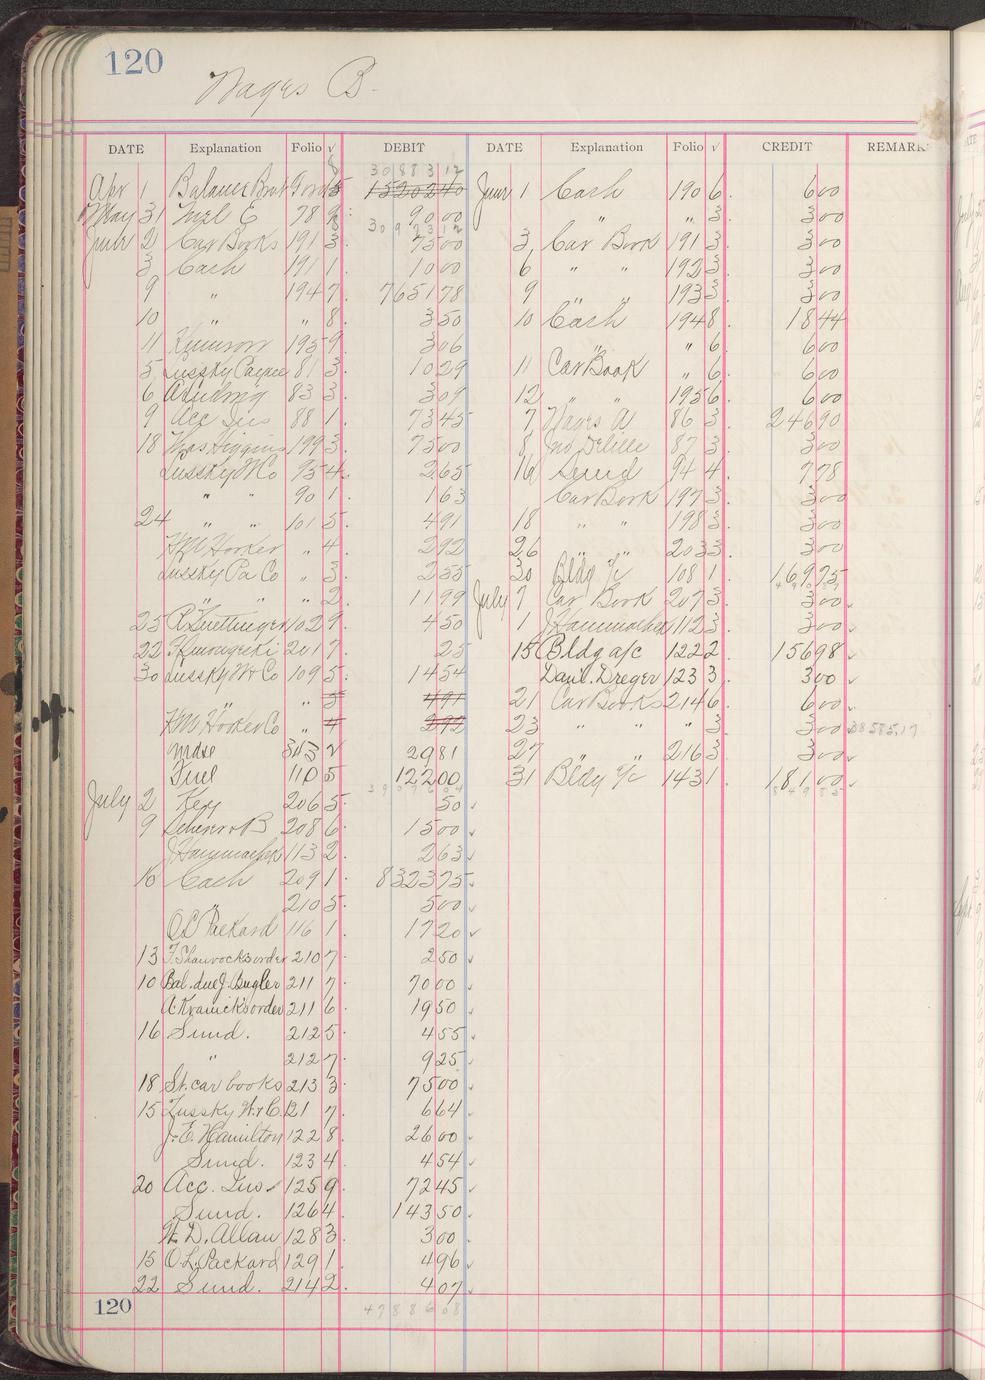 120
Wages B.
DATE Explanation Folio √ DEBIT DATE Explanation Folio √ CREDIT REMARK
30 883 12
Apr 1 Balance 1520240 June 1 Cash 190 6 6 00
May 31 78 90 00 " " 3 3 00
June 2 Car Books 191 3 75 00 3 Car Book 191 3 3 00
3 Cash 191 1 10 00 6 " " 192 3 3 00
9 " 194 7 7651 78 9 " " 193 3 3 00
10 " " 8 3 50 10 Cash 194 8 18 44
11 195 9 3 06 " " 6 6 00
5 Lussky Payne 81 3 10 29 11 Car Book " 6 6 00
6 83 3 3 09 12 " " 195 6 6 00
9 Acc Ins 88 1 73 45 7 Wages A 86 3 246 90
18 Thos Higgins 199 3 75 00 8 Jno Delille 87 3 3 00
Lussky W Co 95 4 2 65 16 Sund 94 4 7 78
" " 90 1 1 63 Car Book 197 3 3 00
24 " " 101 5 4 91 18 " " 198 3 3 00
H M Hooker " 4 2 92 26 " " 203 3 3 00
Lussky Pa Co " 3 2 55 30 Bldg a/c 108 1 169 75
" " " 2 11 99 July 7 Car Book 207 3 3 00
25 102 9 4 50 1 J Hammacher 112 3 3 00
22 201 7 25 15 Bldg a/c 122 2 156 98
30 Lussky W & Co 109 5 14 54 Danl. Dreger 123 3 3 00
" 5 4 91 21 Car Books 214 6 6 00
H M Hooker Co " 4 2 92 23 " " " 3 3 00 38585.17
Mdse 343 √ 29 81 27 " " 216 3 3 00
Fuel 110 5 122 00 31 Bldg a/c 143 1 181 00
July 2 Key 206 5 50
9 208 6 15 00
J Hammacher 113 2 2 63
10 Cash 209 1 8323 75
" 210 5 5 00
O L Packard 116 1 17 20
13 F. Shamrocks order 210 7 2 50
10 Bal. due J. Bugler 211 7 70 00
A. Kranick's order 211 6 19 50
16 Sund. 212 5 4 55
" 212 7 9 25
18 St. car books 213 3 75 00
15 Lussky W. & C. 121 7 6 64
J. E. Hamilton 122 8 26 00
Sund. 123 4 4 54
20 Acc. Ins 125 9 72 45
Sund. 126 4 143 50
W. D. Allan 128 3 3 00
15 O. L. Packard 129 1 4 96
22 Sund. 214 2 4 07
120 47886 08